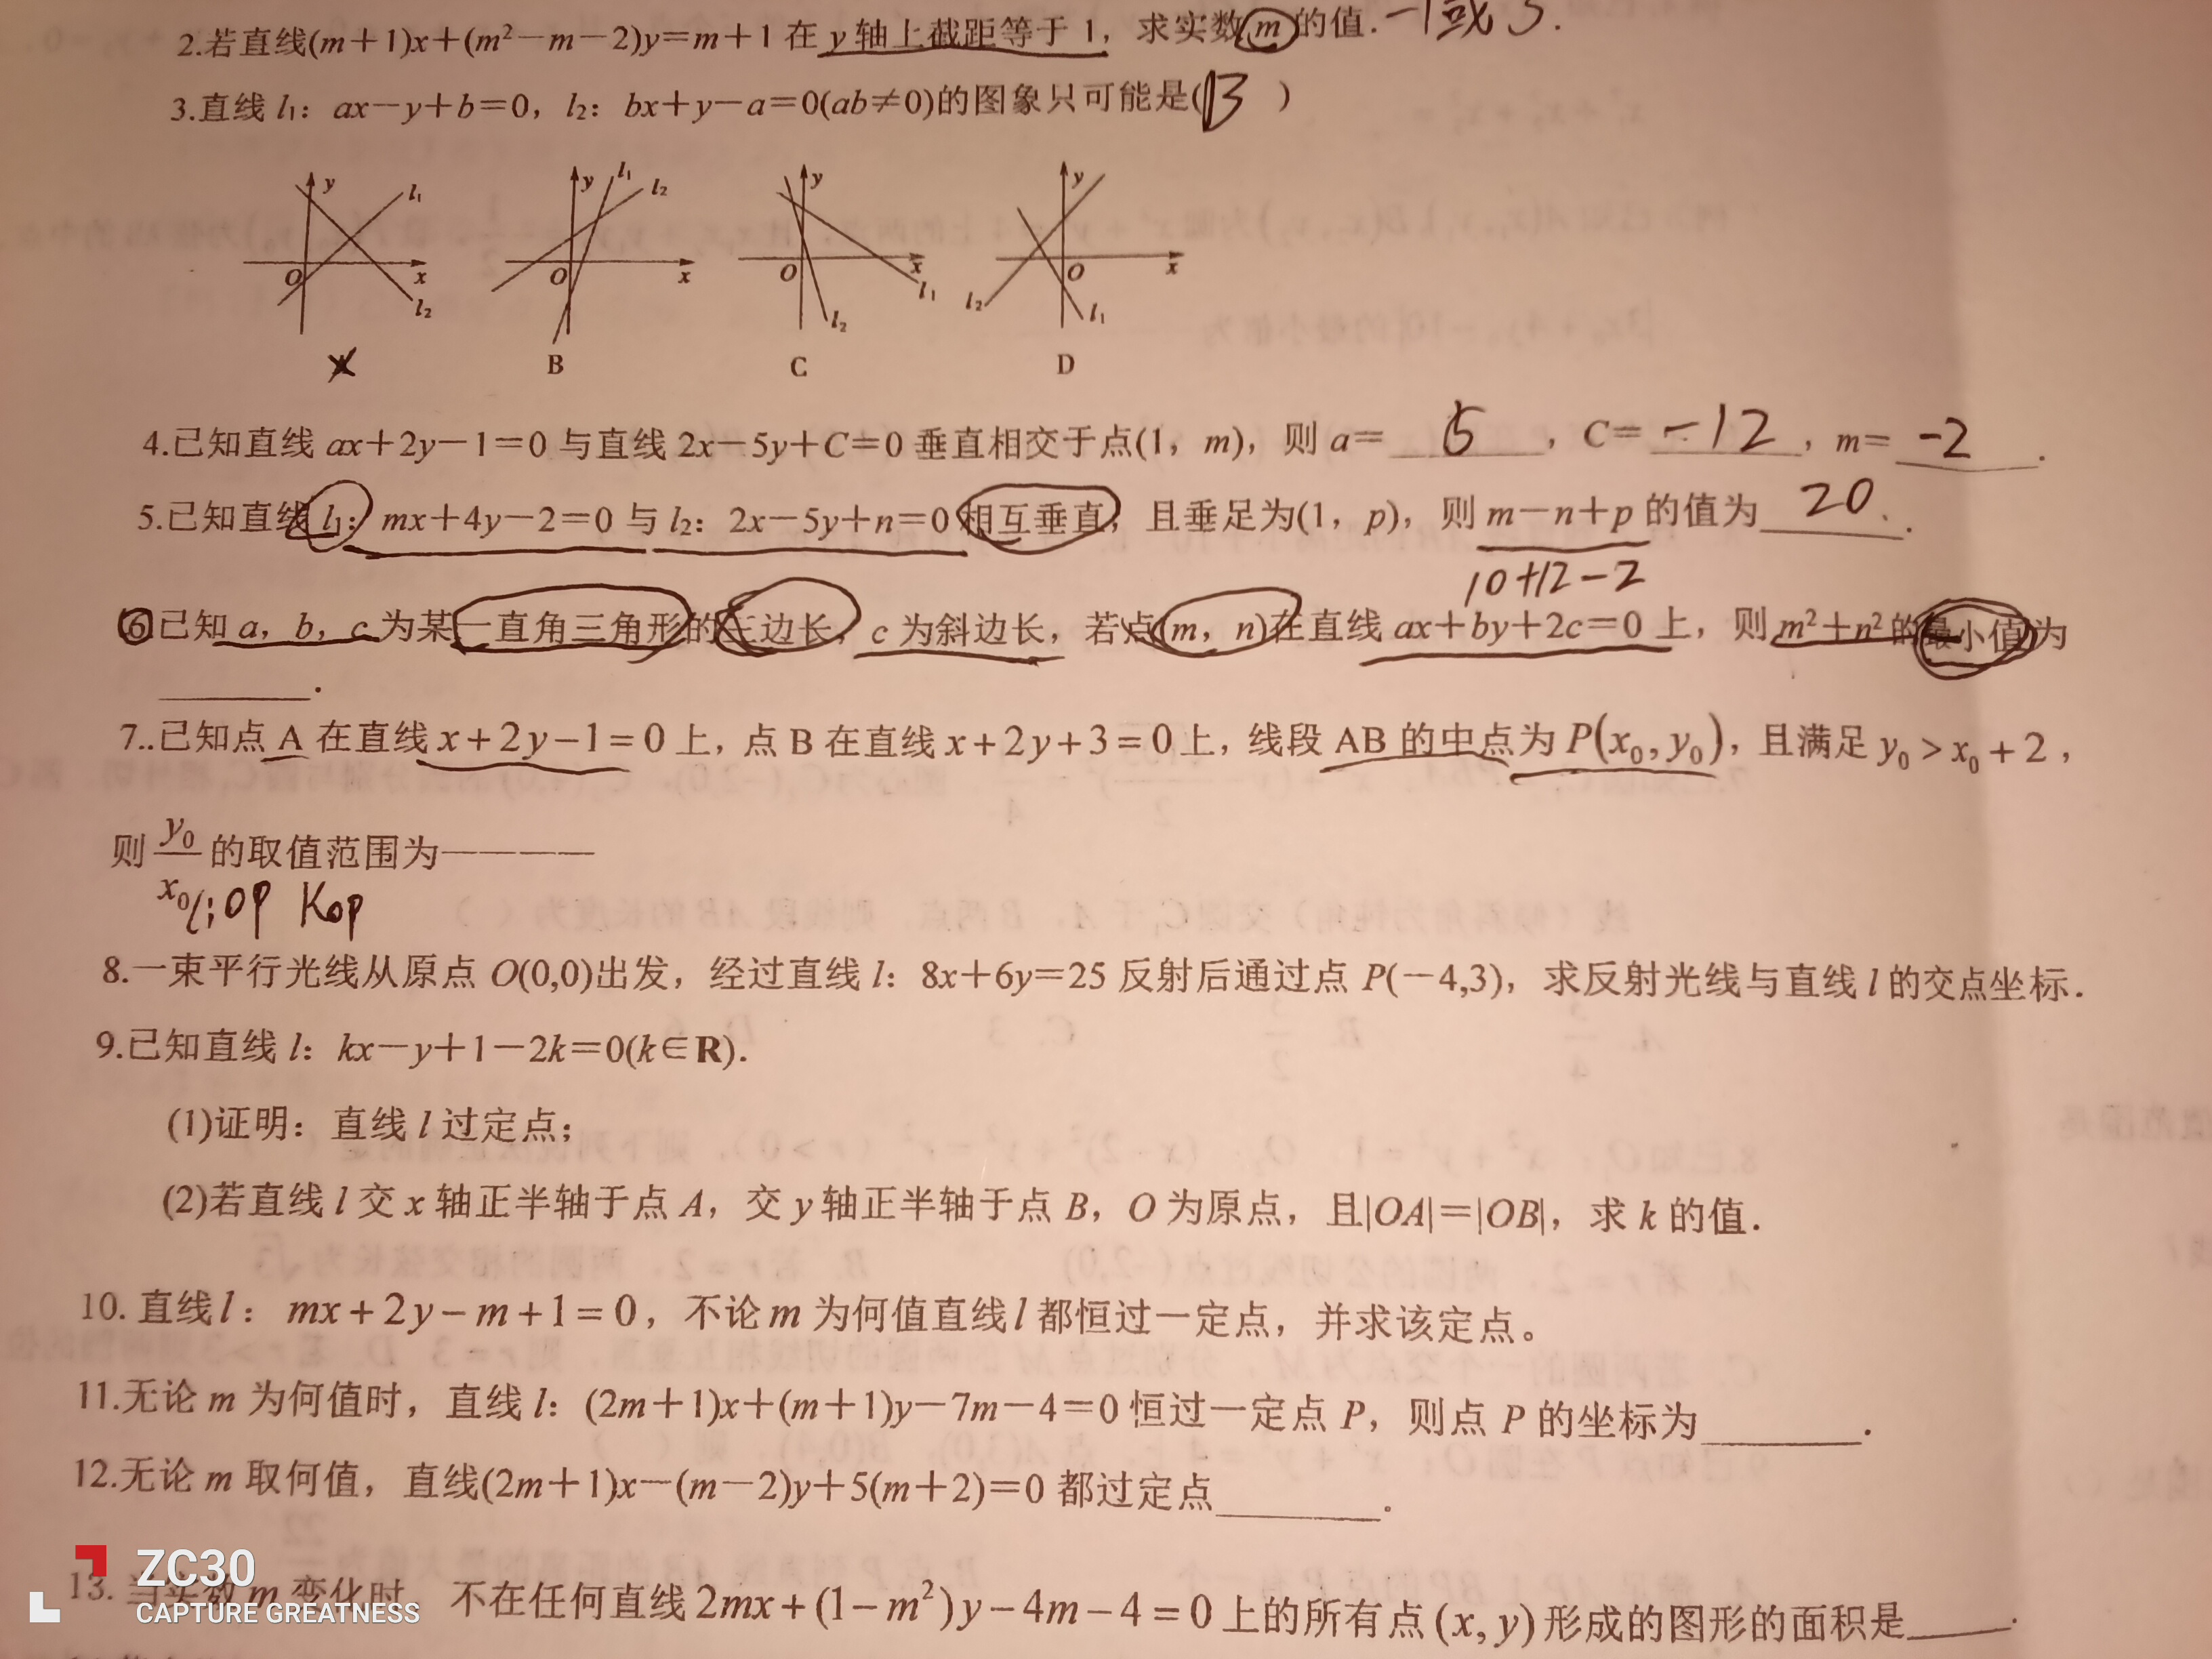 2.若直线(m+1)x+(m²-m-2)y=m+1 在 y 轴上截距等于 1，求实数 m 的值. -1或3.
3.直线 l₁：ax-y+b=0，l₂：bx+y-a=0(ab≠0)的图象只可能是( B )
y l₁ O x l₂ y l₁ l₂ O x y O x l₁ l₂ y O x l₂ l₁
A B C D
4.已知直线 ax+2y-1=0 与直线 2x-5y+C=0 垂直相交于点(1，m)，则 a= 5 ，C= -12 ，m= -2 .
5.已知直线 l₁：mx+4y-2=0 与 l₂：2x-5y+n=0 相互垂直，且垂足为(1，p)，则 m-n+p 的值为 20 .
10+12-2
6.已知 a，b，c 为某一直角三角形的三边长，c 为斜边长，若点(m，n)在直线 ax+by+2c=0 上，则 m²+n² 的最小值为
______.
7..已知点 A 在直线 x+2y-1=0 上，点 B 在直线 x+2y+3=0 上，线段 AB 的中点为 P(x₀,y₀)，且满足 y₀>x₀+2，
则 y₀/x₀ 的取值范围为————
l:OP Kop
8.一束平行光线从原点 O(0,0)出发，经过直线 l：8x+6y=25 反射后通过点 P(-4,3)，求反射光线与直线 l 的交点坐标.
9.已知直线 l：kx-y+1-2k=0(k∈R).
(1)证明：直线 l 过定点；
(2)若直线 l 交 x 轴正半轴于点 A，交 y 轴正半轴于点 B，O 为原点，且|OA|=|OB|，求 k 的值.
10. 直线 l：mx+2y-m+1=0，不论 m 为何值直线 l 都恒过一定点，并求该定点。
11.无论 m 为何值时，直线 l：(2m+1)x+(m+1)y-7m-4=0 恒过一定点 P，则点 P 的坐标为______.
12.无论 m 取何值，直线(2m+1)x-(m-2)y+5(m+2)=0 都过定点______.
13. 当实数 m 变化时，不在任何直线 2mx+(1-m²)y-4m-4=0 上的所有点(x,y)形成的图形的面积是____.
ZC30
CAPTURE GREATNESS